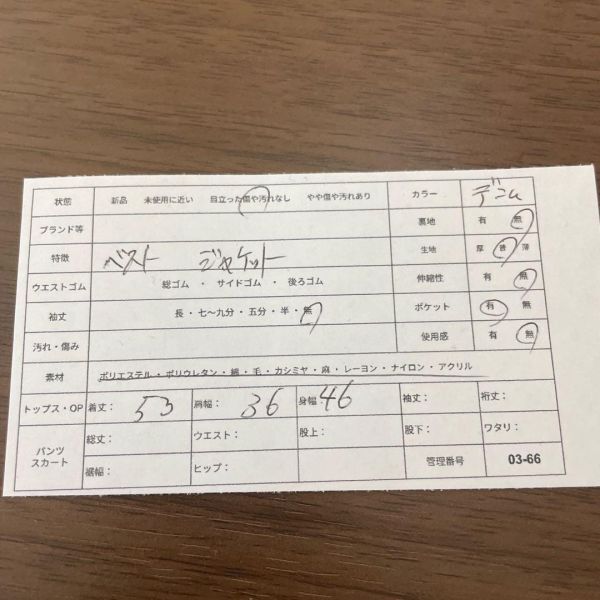 状態 新品 未使用に近い 目立った傷や汚れなし やや傷や汚れあり カラー デニム
ブランド等 裏地 有 無
特徴 ベスト ジャケット 生地 厚 普 薄
ウエストゴム 総ゴム ・ サイドゴム ・ 後ろゴム 伸縮性 有 無
袖丈 長・七〜九分・五分・半・無 ポケット 有 無
汚れ・傷み 使用感 有 無
素材 ポリエステル・ポリウレタン・綿・毛・カシミヤ・麻・レーヨン・ナイロン・アクリル
トップス・OP 着丈: 53 肩幅: 36 身幅: 46 袖丈: 裄丈:
パンツ スカート 総丈: ウエスト: 股上: 股下: ワタリ:
裾幅: ヒップ: 管理番号 03-66